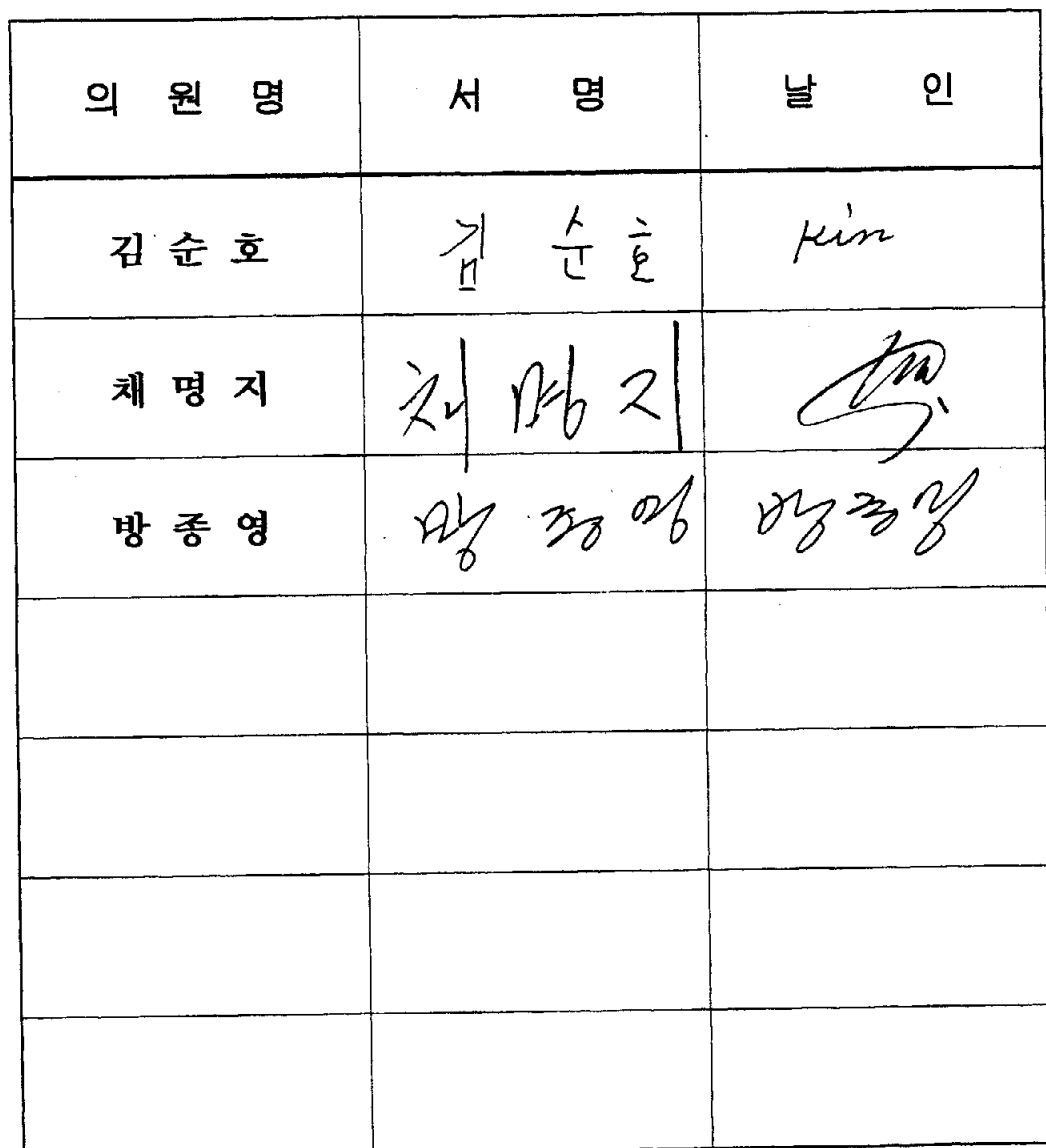 의 원 명 서 명 날 인
김 순 호 김 순 호 Kim
채 명 지 채 명 지
방 종 영 방 종 영 방 종 영